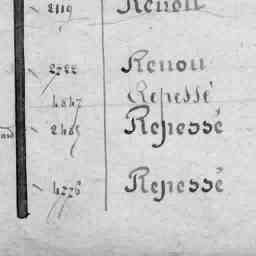 2119 Renou
2722 Renou
4847 Repessé
2489 Repessé
4276 Repessé